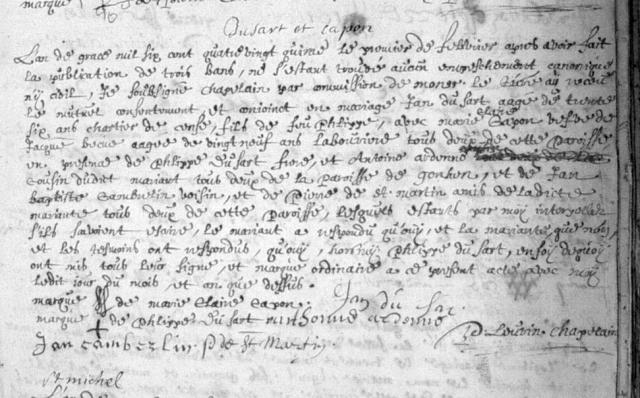 Dusart et Capon
L'an de grace mil six cent quatrevingt quinze le premier de febvrier apres avoir fait
la publication de trois bans, ne s'estant trouvé aucun empeschement canonique
ny civil Je soubsigné Chapelain par commission de monsr le Curé ay receu
le mutuel consentement, et conioinct en mariage Jan du sart aagé de trente
six ans chartier de cense, fils de feu Philippe, avec marie Claire Capon vefve de
Jacque becue aagee de vingt neuf ans labouriere tous deux de cette paroisse
en presence de Philippe du sart frere, et Antoine ardenne
Cousin dudit mariant tous deux de la paroisse de gonhem, et de Jan
baptiste Camberlin voisin, et de Pierre de st martin amis de ladicte
mariante tous deux de cette paroisse, lesquels estants par moy interpellez
s'ils savoient escrire, le mariant a respondu qu'ouy, et la mariante que non,
et les tesmoins ont respondus, qu'ouy, horsmis Philippe du sart, en foy de quoy
ont mis tous leur signe, et marque ordinaire a ce present acte avec moy
ledit jour du mois, et an que dessus.
marque de marie Claire Capon. Jan du Sar
marque de Philippe du sart anthoinne ardenne
Jan camberlin p de St Martin D. Louvin Chapelain
St michel